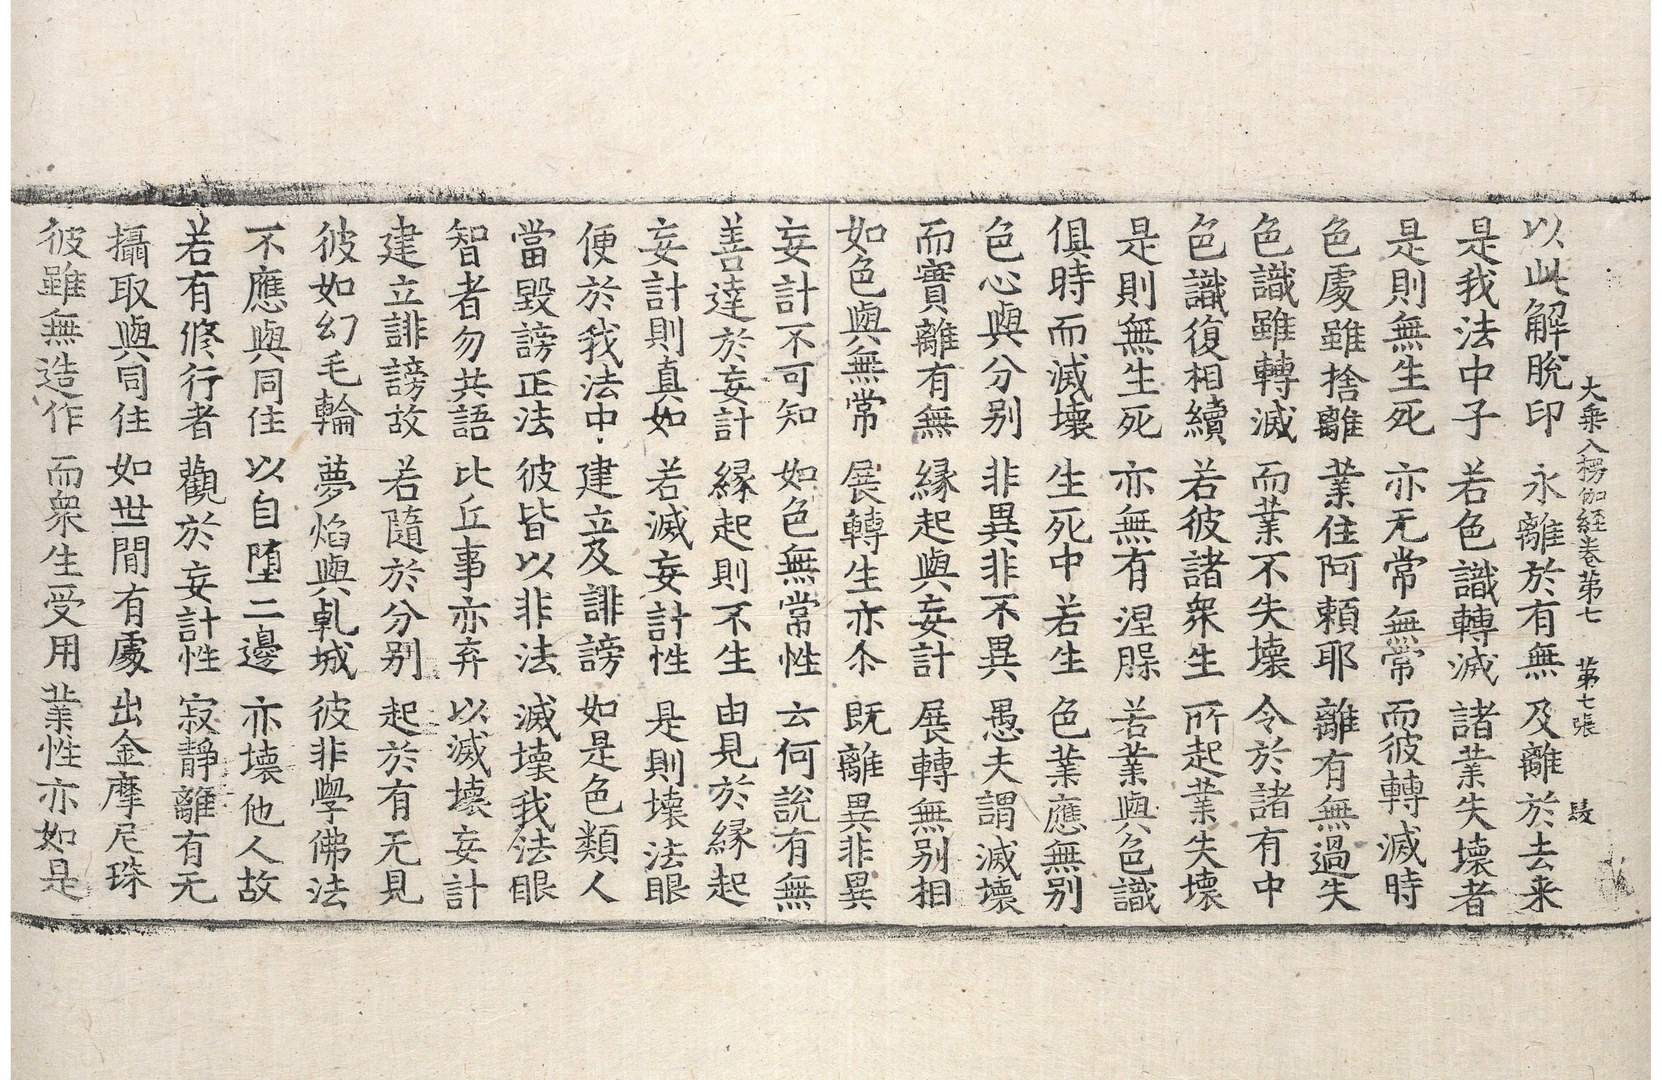 大乘入楞伽経卷第七 第七張
以此解脫印 永離於有無 及離於去来
是我法中子 若色識轉滅 諸業失壞者
是則無生死 亦无常無常 而彼轉滅時
色處雖捨離 業住阿賴耶 離有無過失
色識雖轉滅 而業不失壞 令於諸有中
色識復相續 若彼諸衆生 所起業失壞
是則無生死 亦無有涅槃 若業與色識
俱時而滅壞 生死中若生 色業應無別
色心與分别 非異非不異 愚夫謂滅壞
而實離有無 緣起與妄計 展轉無别相
如色與無常 展轉生亦尒 既離異非異
妄計不可知 如色無常性 云何說有無
善達於妄計 緣起則不生 由見於緣起
妄計則真如 若滅妄計性 是則壞法眼
便於我法中 建立及誹謗 如是色類人
當毀謗正法 彼皆以非法 滅壞我法眼
智者勿共語 比丘事亦弃 以滅壞妄計
建立誹謗故 若隨於分别 起於有无見
彼如幻毛輪 夢焰與乹城 彼非學佛法
不應與同住 以自墮二邊 亦壞他人故
若有修行者 觀於妄計性 寂靜離有无
攝取與同住 如世間有處 出金摩尼珠
彼雖無造作 而衆生受用 業性亦如是